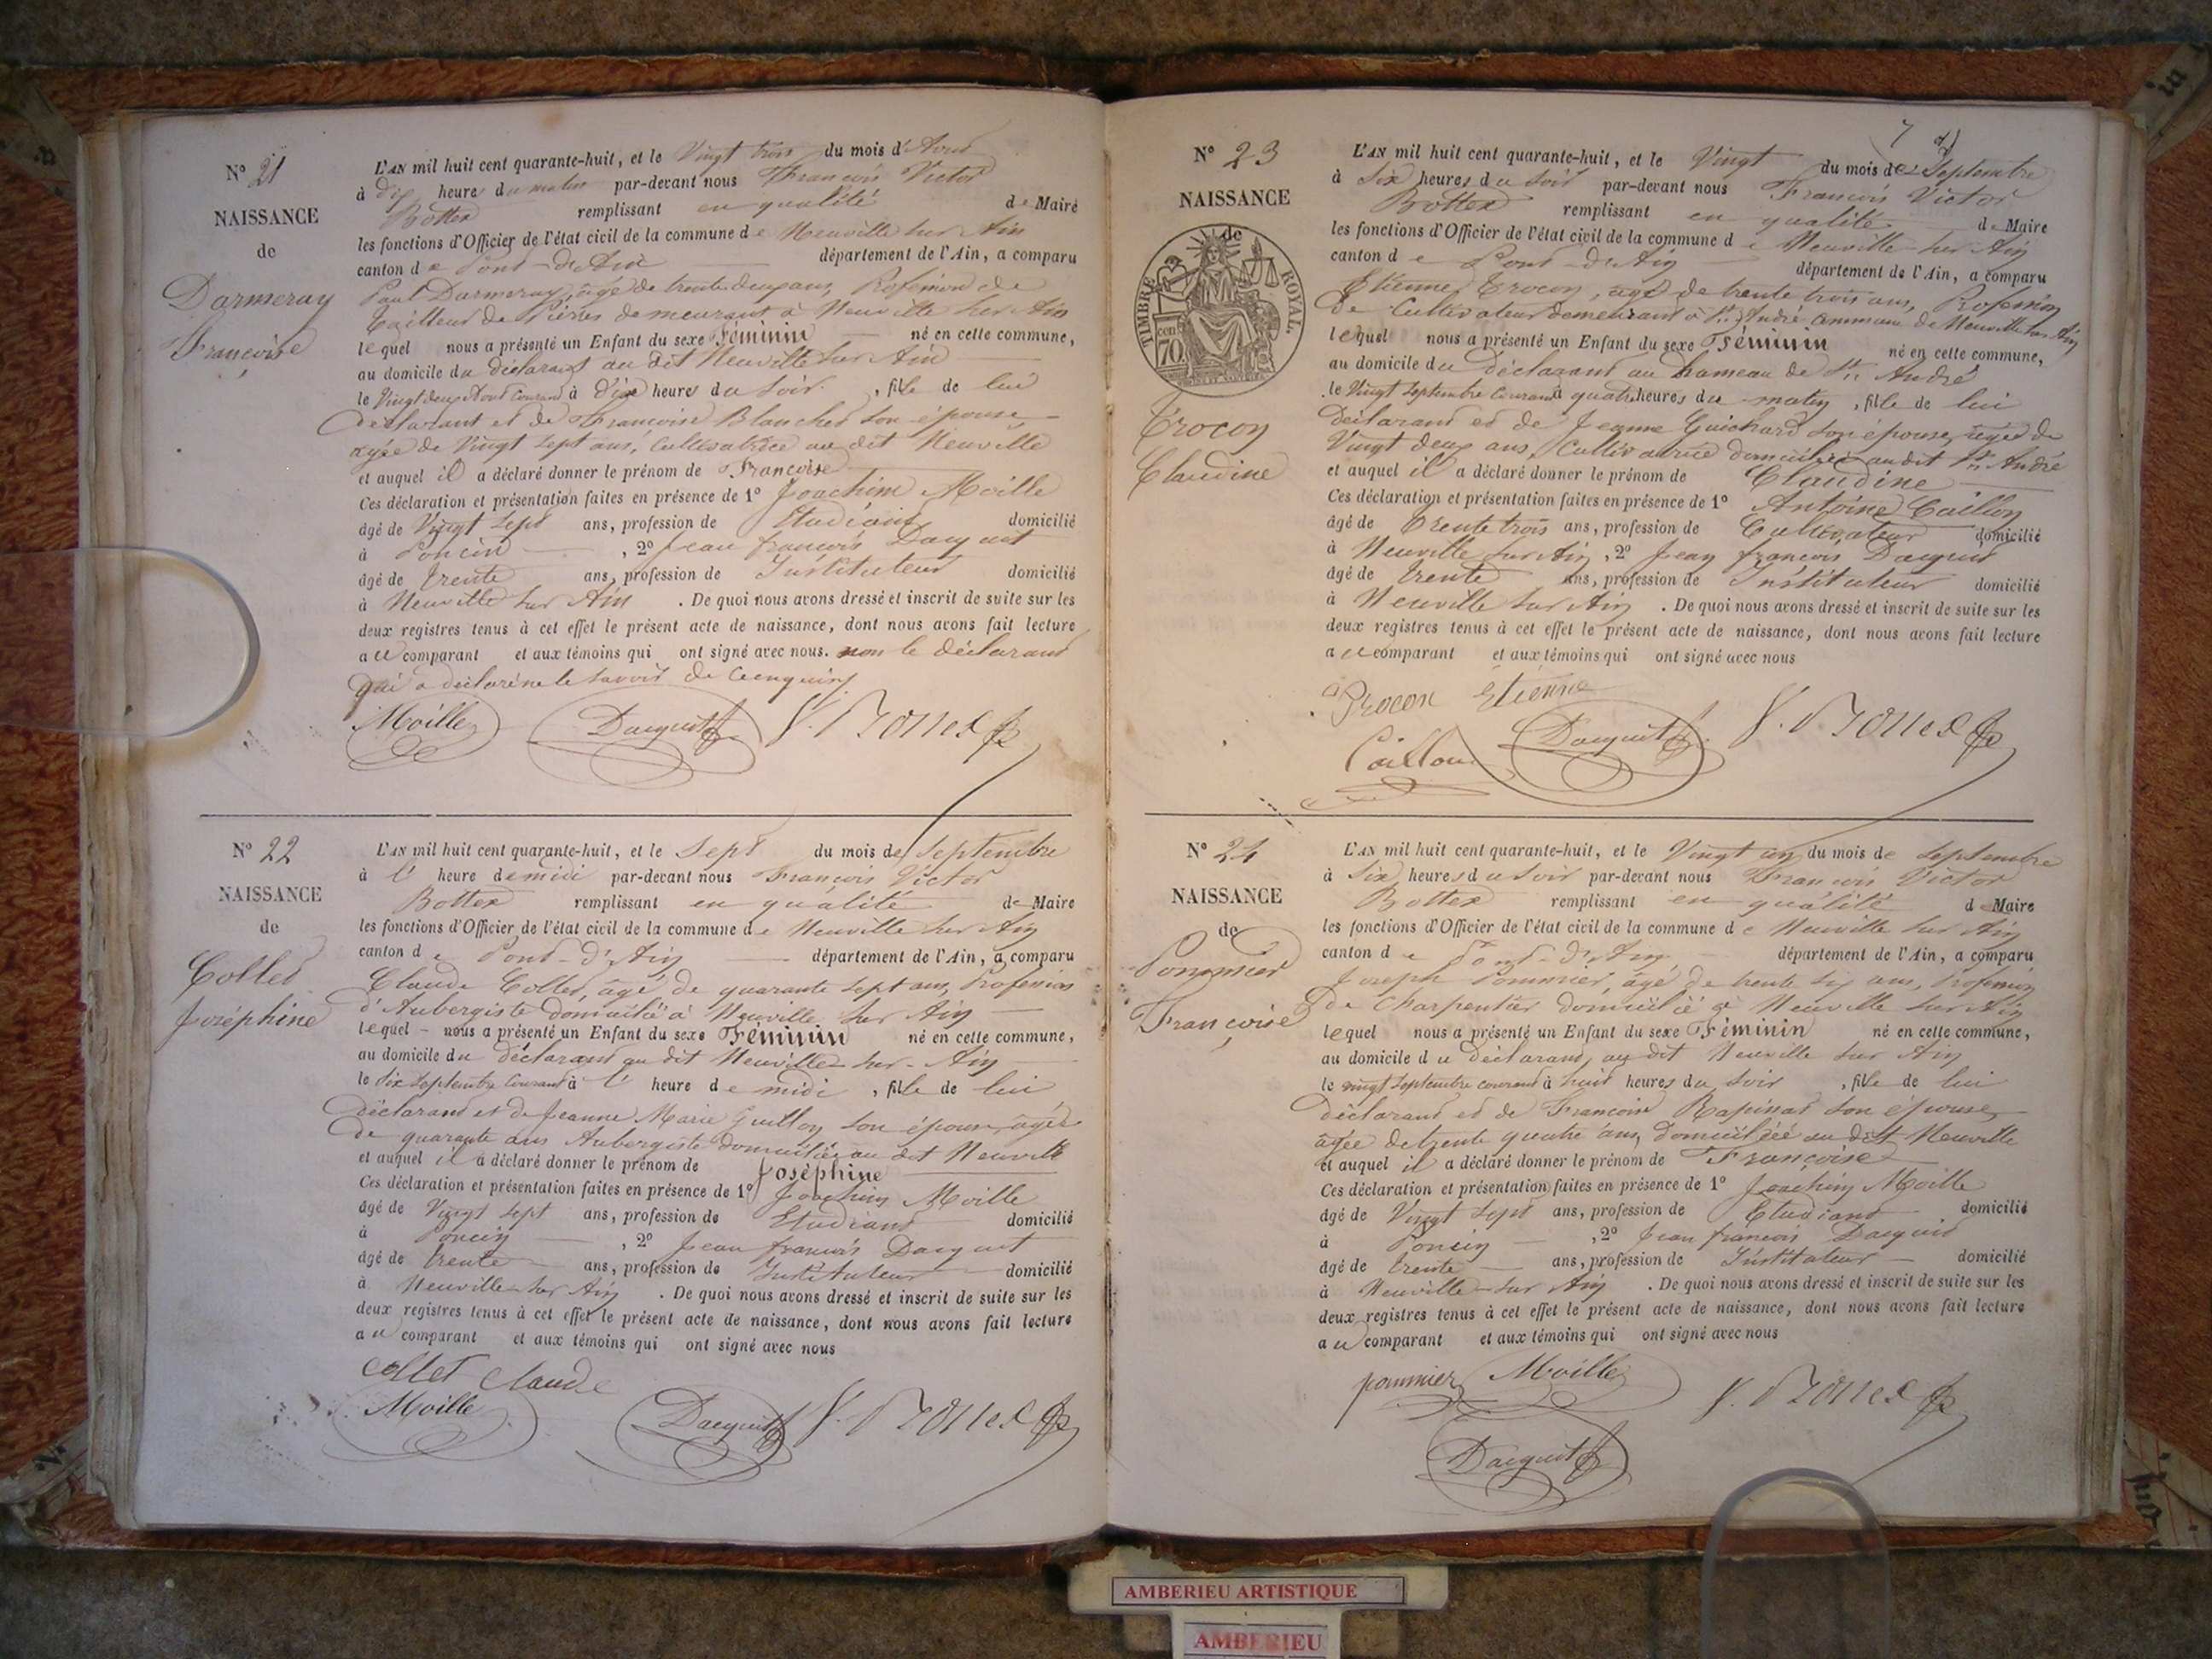 N° 21
NAISSANCE
de
Darmeray
Françoise
L'AN mil huit cent quarante-huit, et le Vingt trois du mois d'Aout
à dix heures du matin par-devant nous François Victor
Bottex remplissant en qualité de Maire
les fonctions d'Officier de l'état civil de la commune de Neuville sur Ain
canton de Pont-d'Ain département de l'Ain, a comparu
Paul Darmeray, âgé de trente deux ans, Profession de
tailleur de Pierres demeurant à Neuville sur Ain
lequel nous a présenté un Enfant du sexe Féminin né en cette commune,
au domicile du déclarant au dit Neuville sur Ain
le Vingt deux Aout courant à dix heures du soir, fille de lui
déclarant et de Françoise Blanchet son épouse
agée de Vingt sept ans, Cultivatrice au dit Neuville
et auquel il a déclaré donner le prénom de Françoise
Ces déclaration et présentation faites en présence de 1° Joachim Moille
âgé de Vingt sept ans, profession de Etudiant domicilié
à Poncin, 2° Jean françois Dacquit
âgé de trente ans, profession de Instituteur domicilié
à Neuville sur Ain. De quoi nous avons dressé et inscrit de suite sur les
deux registres tenus à cet effet le présent acte de naissance, dont nous avons fait lecture
au comparant et aux témoins qui ont signé avec nous. non le déclarant
qui a déclaré ne le savoir de ce enquis
Moille Dacquit V. Bottex
N° 22
NAISSANCE
de
Collet
Joséphine
L'AN mil huit cent quarante-huit, et le Sept du mois de Septembre
à l' heure de midi par-devant nous François Victor
Bottex remplissant en qualité de Maire
les fonctions d'Officier de l'état civil de la commune de Neuville sur Ain
canton de Pont-d'Ain département de l'Ain, a comparu
Claude Collet, âgé de quarante sept ans, Profession
d'Aubergiste domicilié à Neuville sur Ain
lequel nous a présenté un Enfant du sexe Féminin né en cette commune,
au domicile du déclarant au dit Neuville sur-Ain
le six septembre courant à l' heure de midi, fille de lui
déclarant et de Jeanne Marie Guillon son épouse, agée
de quarante ans Aubergiste domiciliée au dit Neuville
et auquel il a déclaré donner le prénom de Joséphine
Ces déclaration et présentation faites en présence de 1° Joachim Moille
âgé de Vingt sept ans, profession de Etudiant domicilié
à Poncin, 2° Jean françois Dacquit
âgé de trente ans, profession de Instituteur domicilié
à Neuville sur Ain. De quoi nous avons dressé et inscrit de suite sur les
deux registres tenus à cet effet le présent acte de naissance, dont nous avons fait lecture
au comparant et aux témoins qui ont signé avec nous
collet claude
Moille Dacquit V. Bottex
7
N° 23
NAISSANCE
de
TIMBRE ROYAL.
70 cen
Trocon
Claudine
L'AN mil huit cent quarante-huit, et le Vingt du mois de Septembre
à Six heures du soir par-devant nous François Victor
Bottex remplissant en qualité de Maire
les fonctions d'Officier de l'état civil de la commune de Neuville sur Ain
canton de Pont-d'Ain département de l'Ain, a comparu
Etienne Trocon, agé de trente trois ans, Profession
de Cultivateur demeurant à St. André commune de Neuville sur Ain
lequel nous a présenté un Enfant du sexe Féminin né en cette commune,
au domicile du déclarant au hameau de St. André
le Vingt septembre courant à quatre heures du matin, fille de lui
déclarant et de Jeanne Guichard son épouse, agée de
Vingt deux ans, Cultivatrice domiciliée au dit St. André
et auquel il a déclaré donner le prénom de Claudine
Ces déclaration et présentation faites en présence de 1° Antoine Caillon
âgé de trente trois ans, profession de Cultivateur domicilié
à Neuville sur Ain, 2° Jean françois Dacquit
âgé de trente ans, profession de Instituteur domicilié
à Neuville sur Ain. De quoi nous avons dressé et inscrit de suite sur les
deux registres tenus à cet effet le présent acte de naissance, dont nous avons fait lecture
au comparant et aux témoins qui ont signé avec nous
Trocon Etienne
Caillon Dacquit V. Bottex
N° 24
NAISSANCE
de
Pommier
Françoise
L'AN mil huit cent quarante-huit, et le Vingt un du mois de Septembre
à Six heures du soir par-devant nous François Victor
Bottex remplissant en qualité de Maire
les fonctions d'Officier de l'état civil de la commune de Neuville sur Ain
canton de Pont-d'Ain département de l'Ain, a comparu
Joseph Pommier, âgé de trente six ans, Profession
de Charpentier domicilié à Neuville sur Ain
lequel nous a présenté un Enfant du sexe Féminin né en cette commune,
au domicile du déclarant, au dit Neuville sur Ain
le vingt septembre courant à huit heures du soir, fille de lui
déclarant et de Françoise Rapinat son épouse,
agée de trente quatre ans, domiciliée au dit Neuville
et auquel il a déclaré donner le prénom de Françoise
Ces déclaration et présentation faites en présence de 1° Joachim Moille
âgé de Vingt sept ans, profession de Etudiant domicilié
à Poncin, 2° Jean françois Dacquit
âgé de trente ans, profession de Instituteur domicilié
à Neuville sur Ain. De quoi nous avons dressé et inscrit de suite sur les
deux registres tenus à cet effet le présent acte de naissance, dont nous avons fait lecture
au comparant et aux témoins qui ont signé avec nous
pommier Moille V. Bottex
Dacquit
AMBERIEU ARTISTIQUE
AMBERIEU